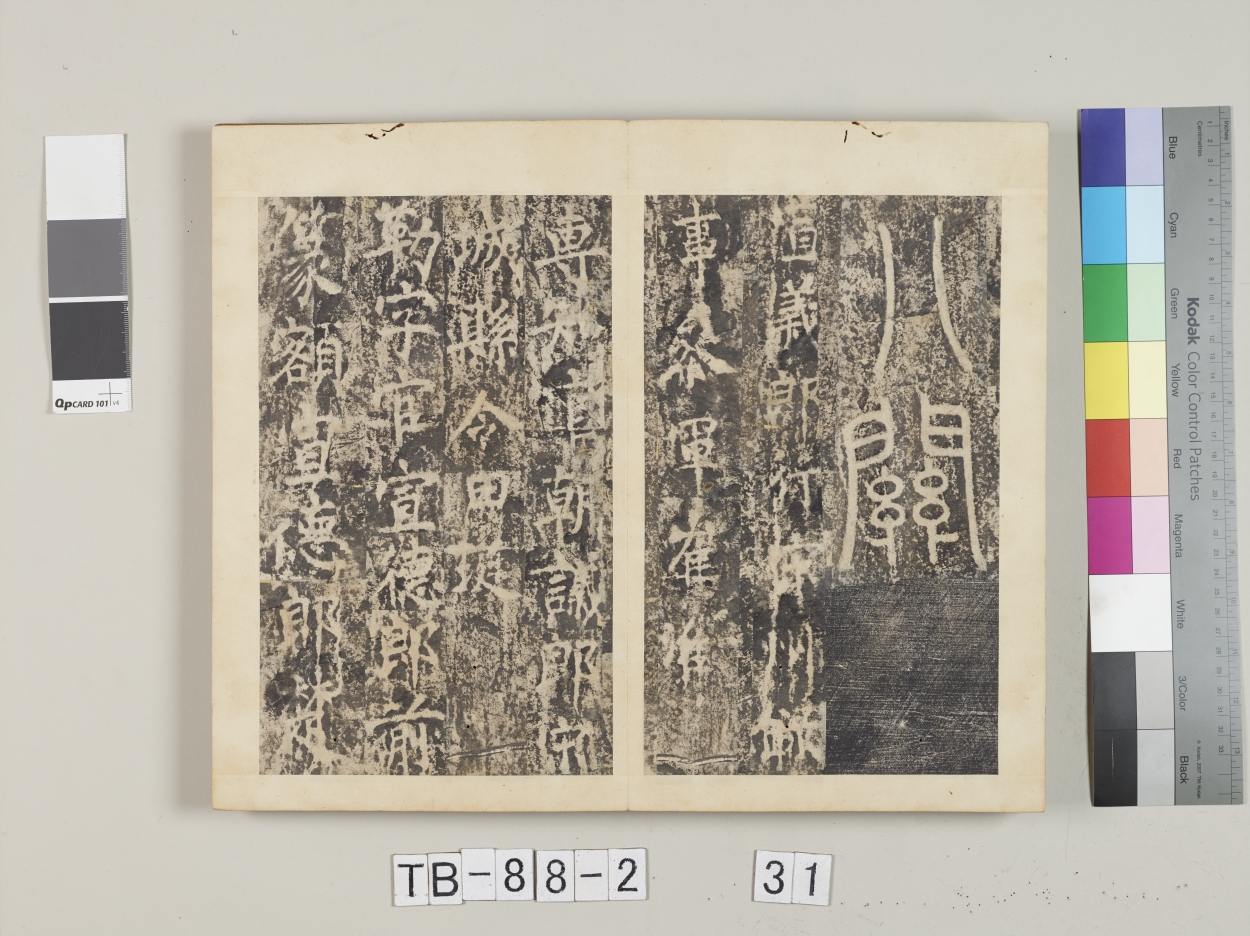 八關
宣義郎行宋州録
事叅軍崔
專知官朝議郎宋
城縣令田
勒字官宣德郎前
篆額宣德郎
TB-88-2 31
QPCARD 101 v4
Kodak Color Control Patches
Blue
Cyan
Green
Yellow
Red
Magenta
White
3/Color
Black
Inches
Centimetres